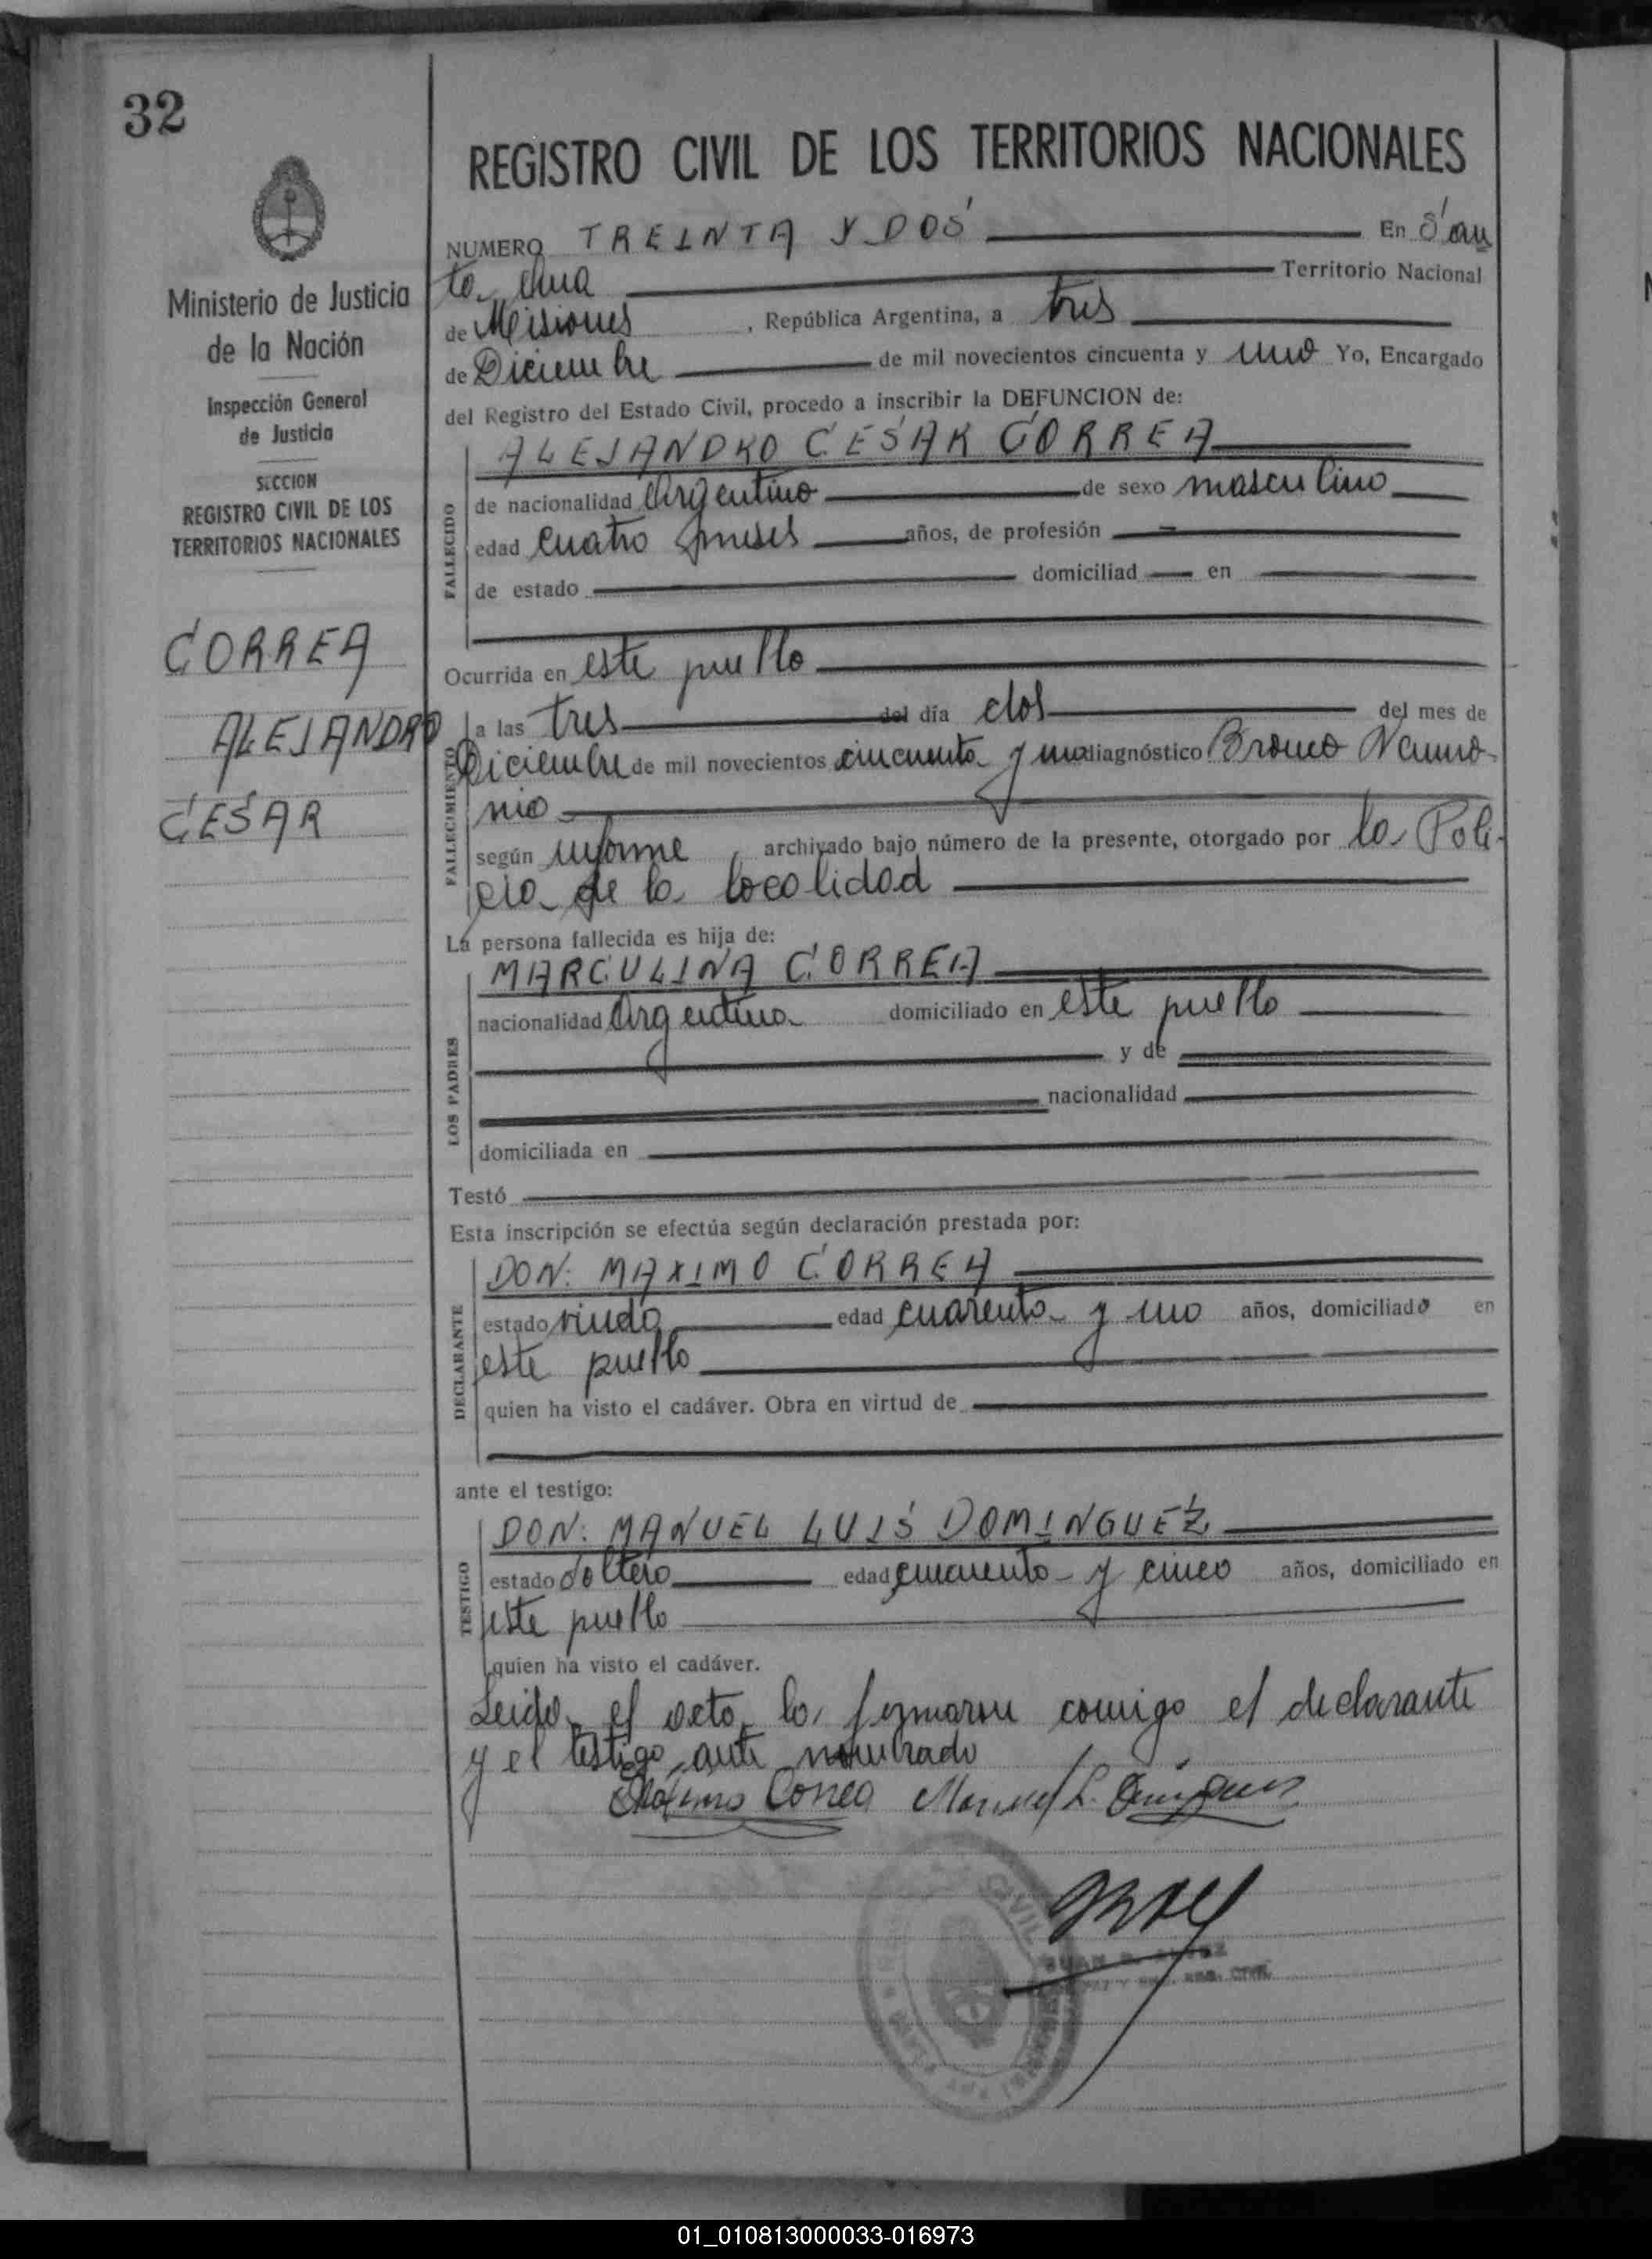 32
Ministerio de Justicia
de la Nación
Inspección General
de Justicia
SECCION
REGISTRO CIVIL DE LOS
TERRITORIOS NACIONALES
CORREA
ALEJANDRO
CESAR
REGISTRO CIVIL DE LOS TERRITORIOS NACIONALES
NUMERO TREINTA Y DOS En San
ta Ana Territorio Nacional
de Misiones , República Argentina, a tres
de Diciembre de mil novecientos cincuenta y uno Yo, Encargado
del Registro del Estado Civil, procedo a inscribir la DEFUNCION de:
FALLECIDO
ALEJANDRO CESAR CORREA
de nacionalidad Argentino de sexo masculino
edad cuatro meses años, de profesión
de estado domiciliad en
Ocurrida en este pueblo
FALLECIMIENTO
a las tres del día dos del mes de
Diciembre de mil novecientos cincuenta y uno diagnóstico Bronco Neumo
nia
según informe , archivado bajo número de la presente, otorgado por la Poli-
cia de la localidad
La persona fallecida es hija de:
LOS PADRES
MARCULINA CORREA
nacionalidad Argentina domiciliado en este pueblo
y de
nacionalidad
domiciliada en
Testó
Esta inscripción se efectúa según declaración prestada por:
DECLARANTE
DON: MAXIMO CORREA
estado viudo edad cuarenta y uno años, domiciliado en
este pueblo
quien ha visto el cadáver. Obra en virtud de
ante el testigo:
TESTIGO
DON: MANUEL LUIS DOMINGUEZ
estado soltero edad cincuenta y cinco años, domiciliado en
este pueblo
quien ha visto el cadáver.
Leida el acta, la firmaron comigo el declarante
y el testigo ante nombrado
Máximo Correa Manuel L. Dominguez
CIVIL
REG. CIVIL
01_010813000033-016973